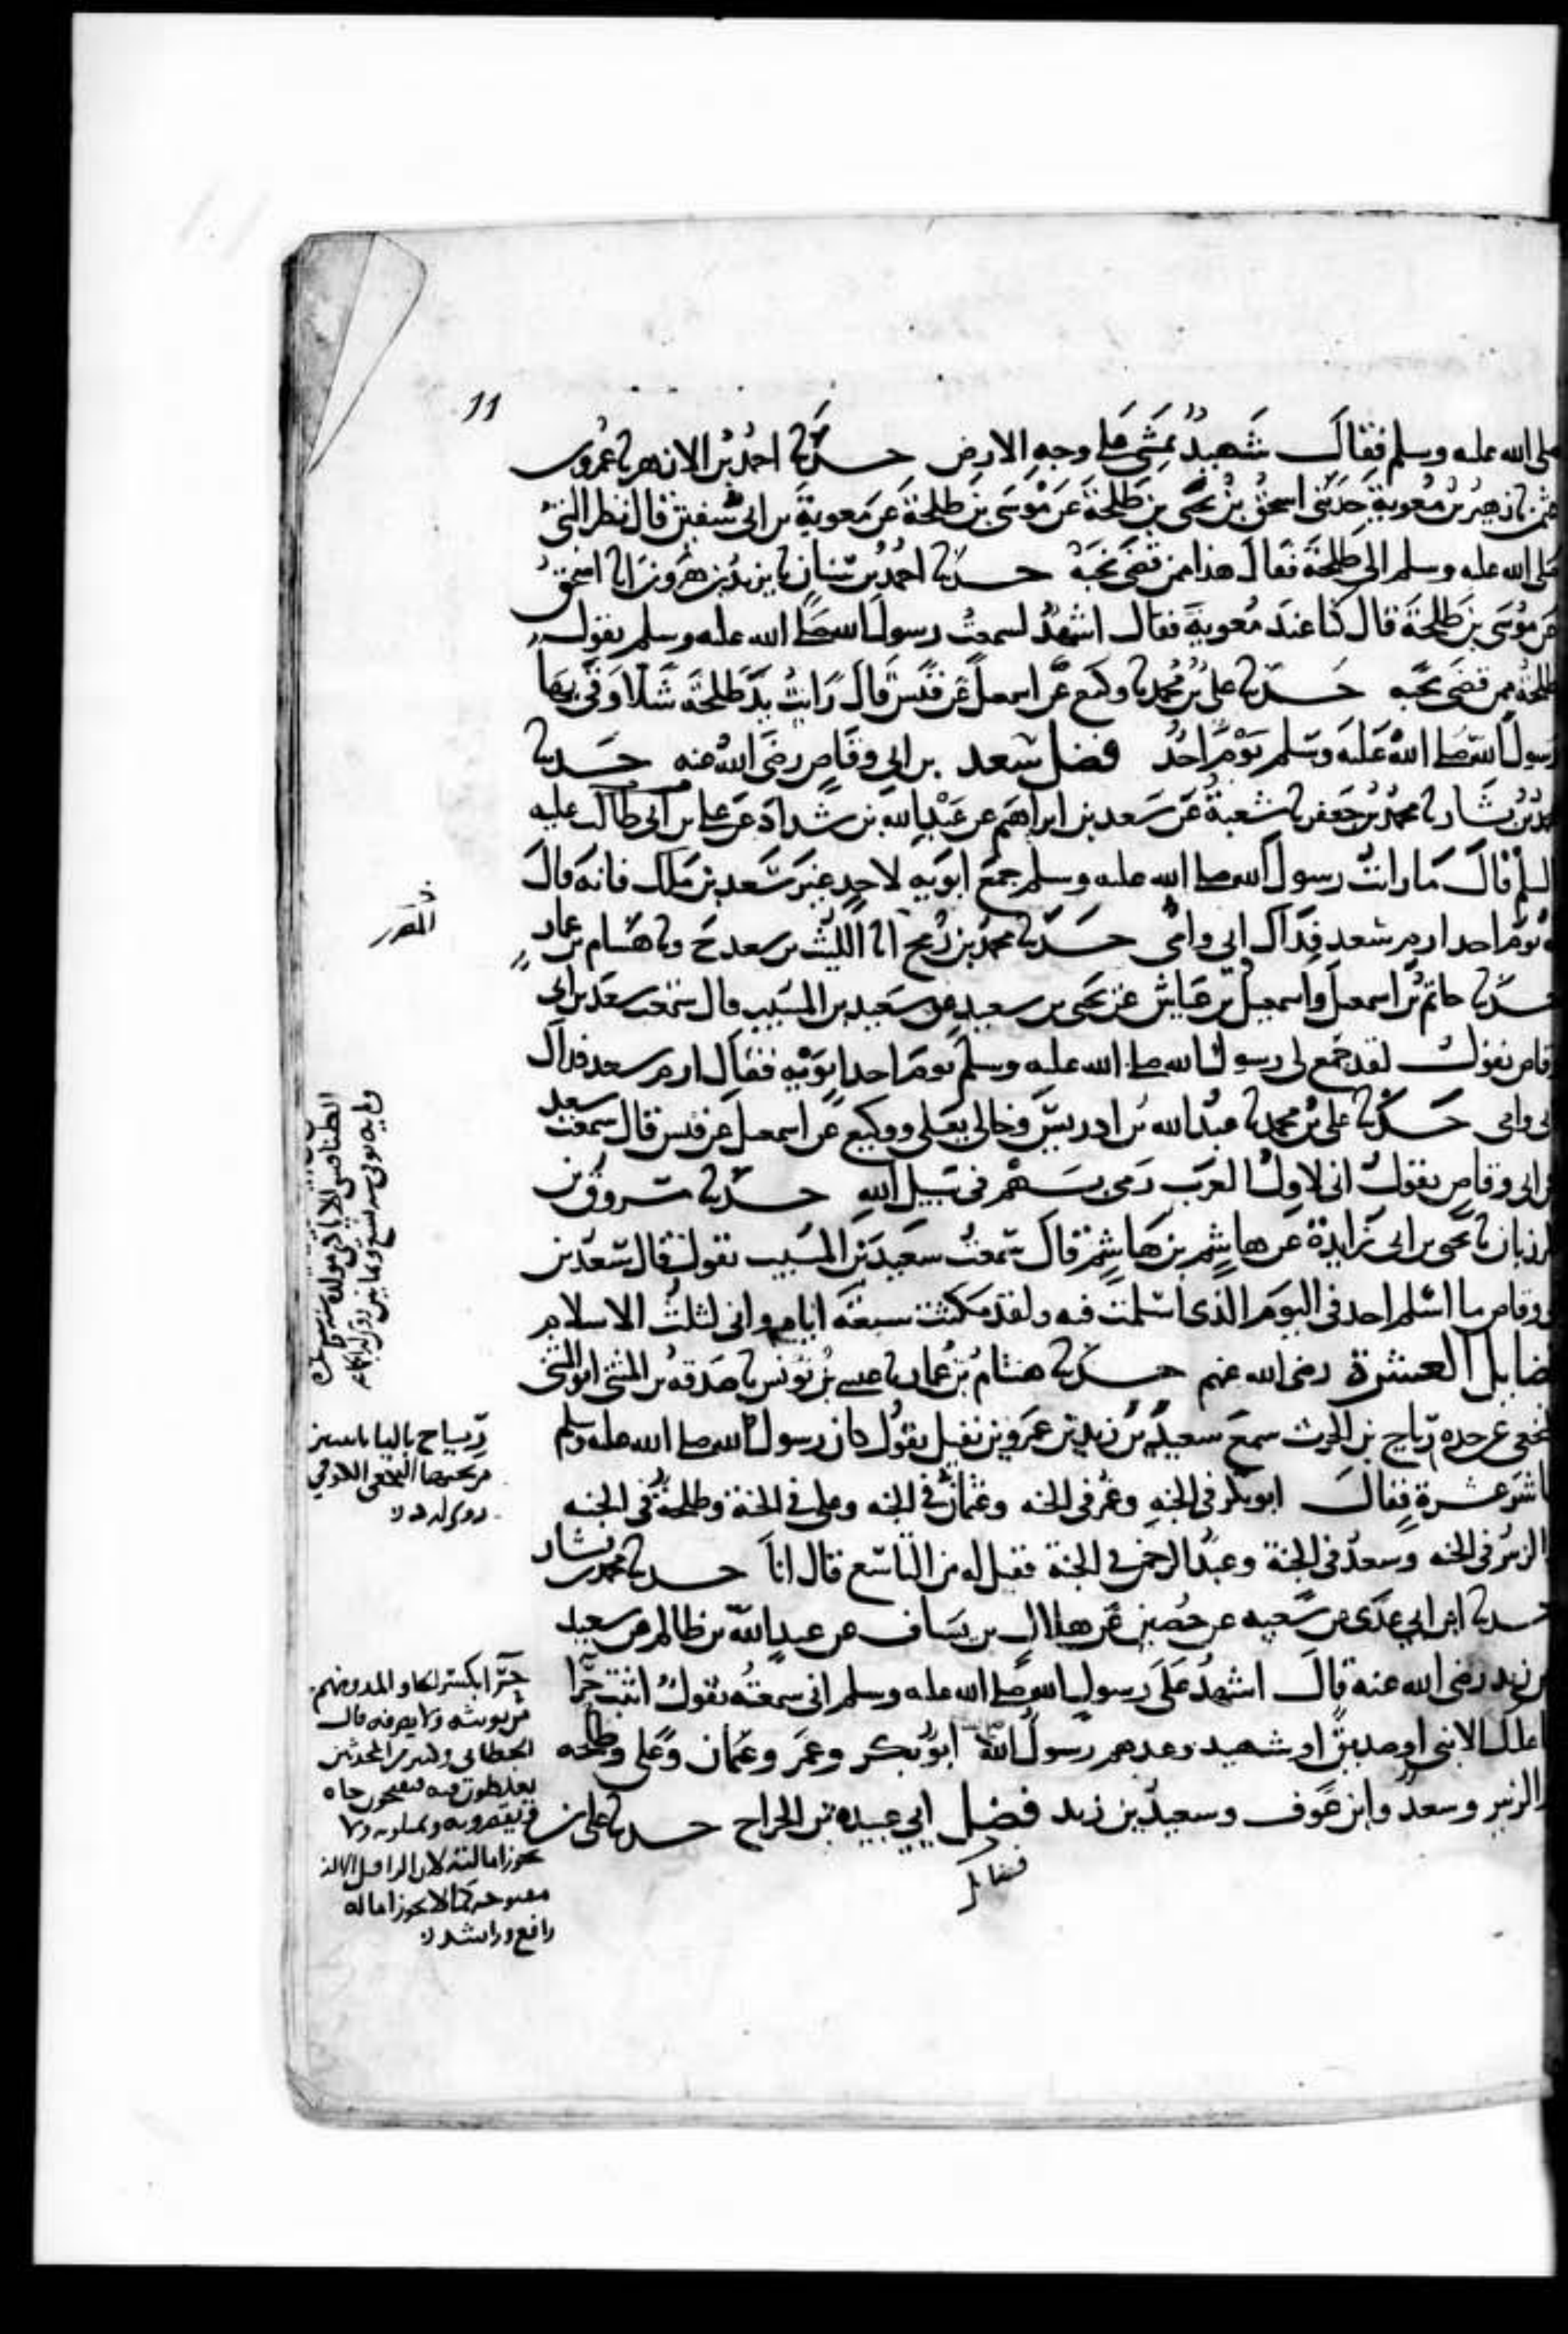 11
صلى الله عليه وسلم فقال شهيد يمشي على وجه الارض حدثنا احمد بن الازهر ثنا عمرو بن
عثمن ثنا زهير بن معوية حدثني اسحق بن يحيى بن طلحة عن موسى بن طلحة عن معوية بن ابي سفين قال نظر النبي
صلى الله عليه وسلم الى طلحة فقال هذا ممن قضى نحبه حدثنا احمد بن سنان ثنا يزيد بن هرون انا اسحق
عن موسى بن طلحة قال كنا عند معوية فقال اشهد لسمعت رسول الله صلى الله عليه وسلم يقول
طلحة ممن قضى نحبه حدثنا علي بن محمد ثنا وكيع عن اسمعيل عن قيس قال رايت يد طلحة شلا وقى بها
رسول الله صلى الله عليه وسلم يوم احد فضل سعد بن ابي وقاص رضى الله عنه حدثنا
محمد بن بشار ثنا محمد بن جعفر ثنا شعبة عن سعد بن ابراهيم عن عبد الله بن شداد عن علي بن ابي طالب عليه
السلم قال ما رايت رسول الله صلى الله عليه وسلم جمع ابويه لاحد غير سعد بن ملك فانه قال
له يوم احد ارم سعد فداك ابي وامي حدثنا محمد بن رمح انا الليث بن سعد ح وثنا هشام بن عمار
حدثنا حاتم بن اسمعيل واسمعيل بن عياش عن يحيى بن سعيد عن سعيد بن المسيب قال سمعت سعد بن ابي
وقاص يقول لقد جمع لي رسول الله صلى الله عليه وسلم يوم احد ابويه فقال ارم سعد فداك
ابي وامي حدثنا علي بن محمد ثنا عبد الله بن ادريس وخالي يعلى ووكيع عن اسمعيل عن قيس قال سمعت سعد
بن ابي وقاص يقول اني لاول العرب رمى بسهم في سبيل الله حدثنا مسروق بن
المرزبان ثنا يحيى بن ابي زايدة عن هاشم بن هاشم قال سمعت سعيد بن المسيب يقول قال سعد بن
ابي وقاص ما اسلم احد في اليوم الذي اسلمت فيه ولقد مكثت سبعة ايام واني لثلث الاسلام
فضايل العشرة رضى الله عنهم حدثنا هشام بن عمار ثنا عيسى بن يونس ثنا صدقة بن المثنى ابو المثنى
النخعي عن جده رياح بن الحرث سمع سعيد بن زيد بن عمرو بن نفيل يقول كان رسول الله صلى الله عليه وسلم
عاشر عشرة فقال ابو بكر في الجنه وعمر في الجنه وعثمان في الجنه وعلي في الجنة وطلحة في الجنه
والزبير في الجنه وسعد في الجنة وعبد الرحمن في الجنة فقيل له من التاسع قال انا حدثنا محمد بن بشار
حدثنا ابن ابي عدي عن شعبه عن حصين عن هلال بن يساف عن عبد الله بن ظالم عن سعيد
بن زيد رضى الله عنه قال اشهد على رسول الله صلى الله عليه وسلم اني سمعته يقول اثبت حرا
فما عليك الا نبي او صديق او شهيد وعدهم رسول الله ابو بكر وعمر وعثمان وعلي وطلحه
والزبير وسعد وابن عوف وسعيد بن زيد فضل ابي عبيدة بن الجراح حدثنا علي بن
فضايل
الطنافسي الايادي مولده سنة
رياح باليا باثنين
من تحتها النخعي الكوفي
روى له د
حرا بكسر الحا والمد ومنهم
من يؤنثه ولا يصرفه قال
الخطابي وكثير من المحدثين
يغلطون فيه فيفتحون حاه
ويقصرونه ويميلونه ولا
يجوز امالته لان الرا قبل الالف
مفتوحة كما لا يجوز امالة
رافع وراشد